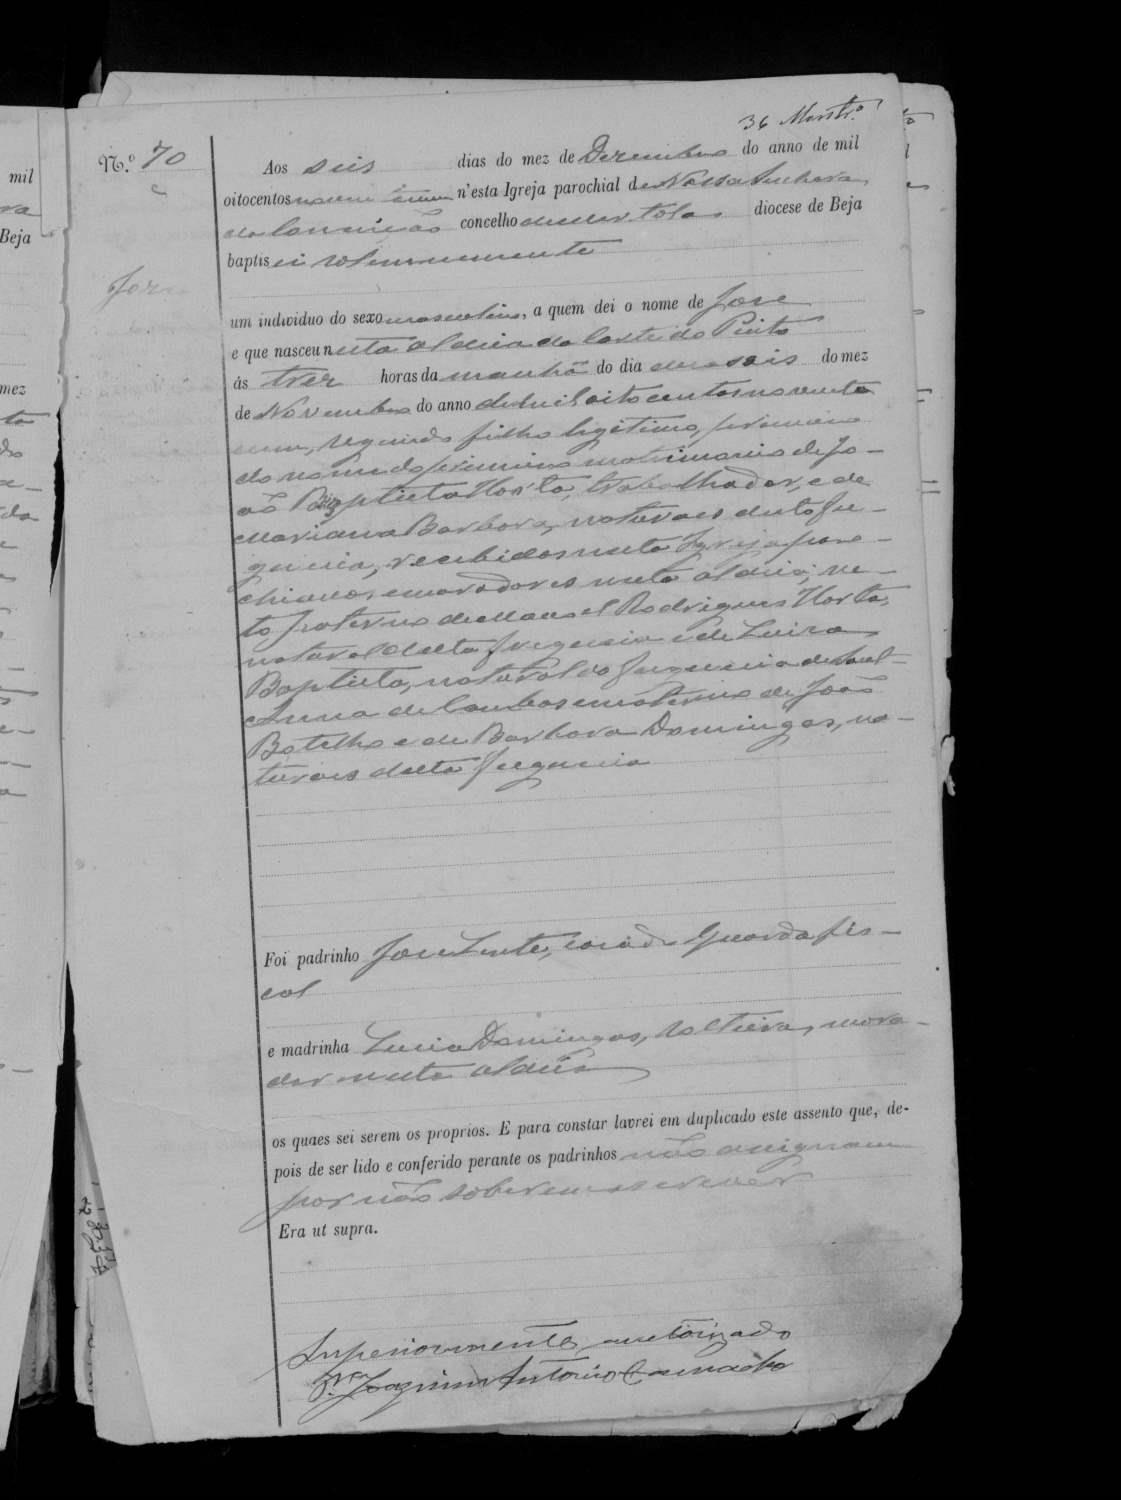 36 Mestr.º
N.º 70
José
Aos seis dias do mez de Dezembro do anno de mil
oitocentos noventa e um n'esta Igreja parochial de Nossa Senhora
da Conceição concelho de Mertola diocese de Beja
baptisei solemnemente
um individuo do sexo masculino, a quem dei o nome de José
e que nasceu nesta aldeia da Corte do Pinto
ás trez horas da manhã do dia deseseis do mez
de Novembro do anno de mil oito centos noventa
e um, segundo filho ligitimo, primeiro
do nome do primeiro matrimonio de Jo-
ão Baptista Horta, trabalhador, e de
Marianna Barbora, naturaes desta fre-
guesia, recebidos nesta Igreja paro-
chianos e moradores nesta aldeia; ne-
to paterno de Manoel Rodrigues Horta,
natural desta freguesia e de Luiza
Baptista, natural da freguesia de Sant-
Anna de Cambas e materno de João
Botelho e de Barbora Domingas, na-
turaes desta freguesia
Foi padrinho José Lente, casado Guarda fis-
cal
e madrinha Lucia Domingas, solteira, mora-
dor nesta aldeia
os quaes sei serem os proprios. E para constar lavrei em duplicado este assento que, de-
pois de ser lido e conferido perante os padrinhos não assignam
por não saberem escrever
Era ut supra.
Superiormente auctorizado
P.e Joaquim Antonio Camacho